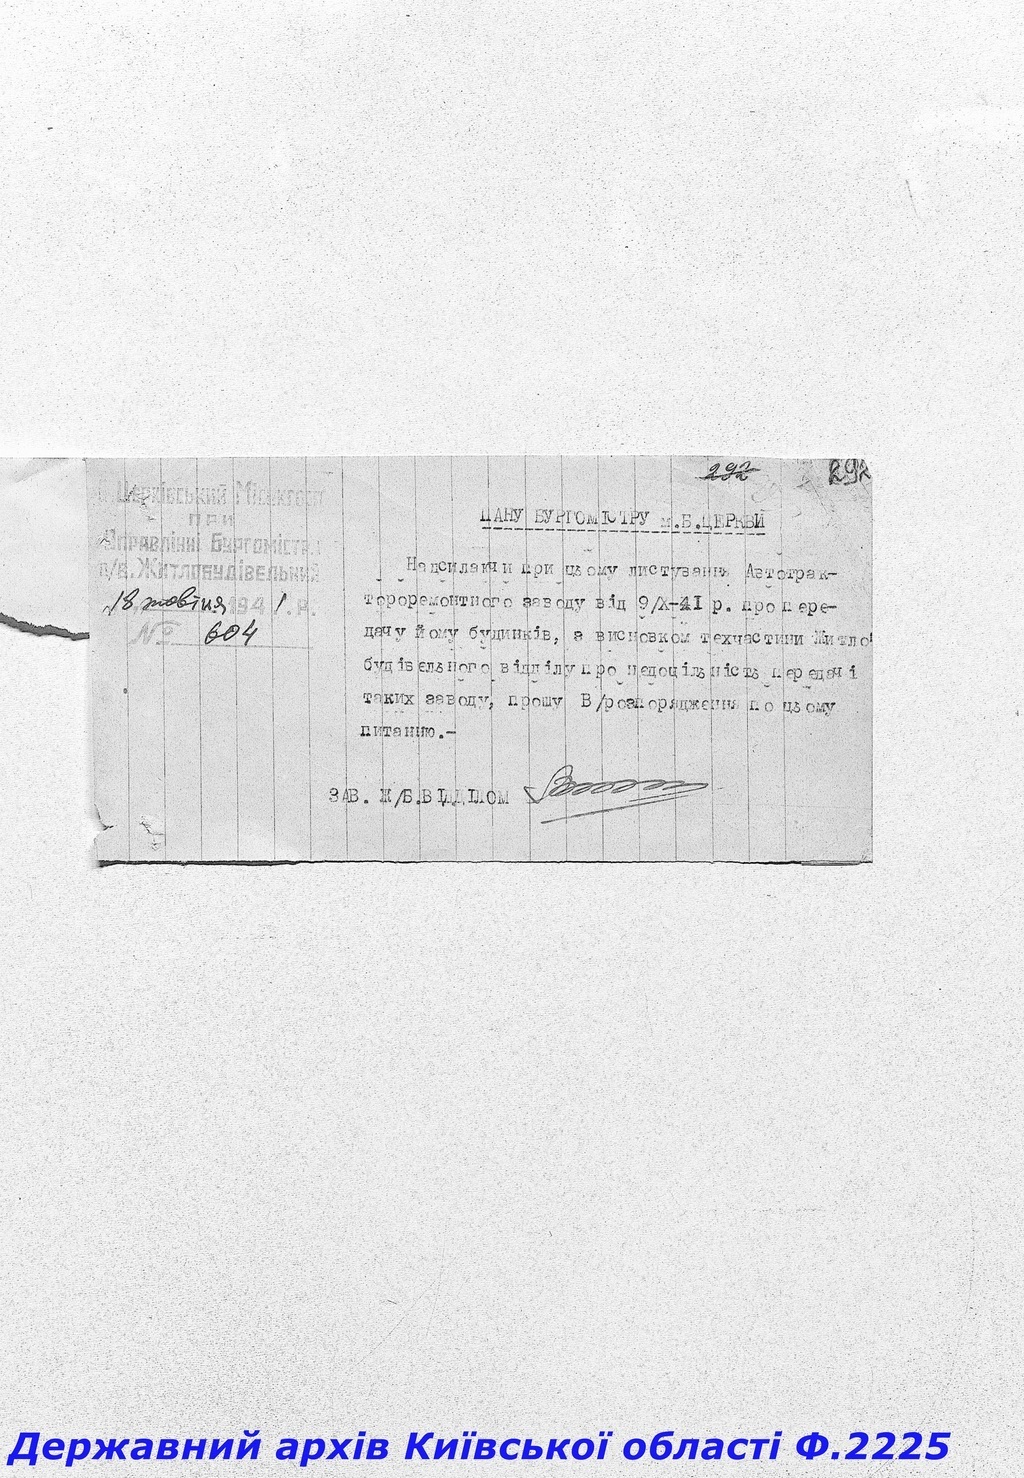 292 292
Церківський Міськгосп
при
Управлінні Бургомістра
п/в. Житлобудівельний
18 жовтня 1941 р.
№ 604
ПАНУ БУРГОМІСТРУ м.Б.ЦЕРКВИ
Надсилаючи при цьому листування Автотрак-
тороремонтного заводу від 9/Х-41 р. про пере-
дачу йому будинків, з висновком техчастини Житло
будівельного відділу про недоцільність передачі
таких заводу, прошу В/розпорядження по цьому
питанню.-
ЗАВ. Ж/Б.ВІДДІЛОМ
Державний архів Київської області Ф.2225